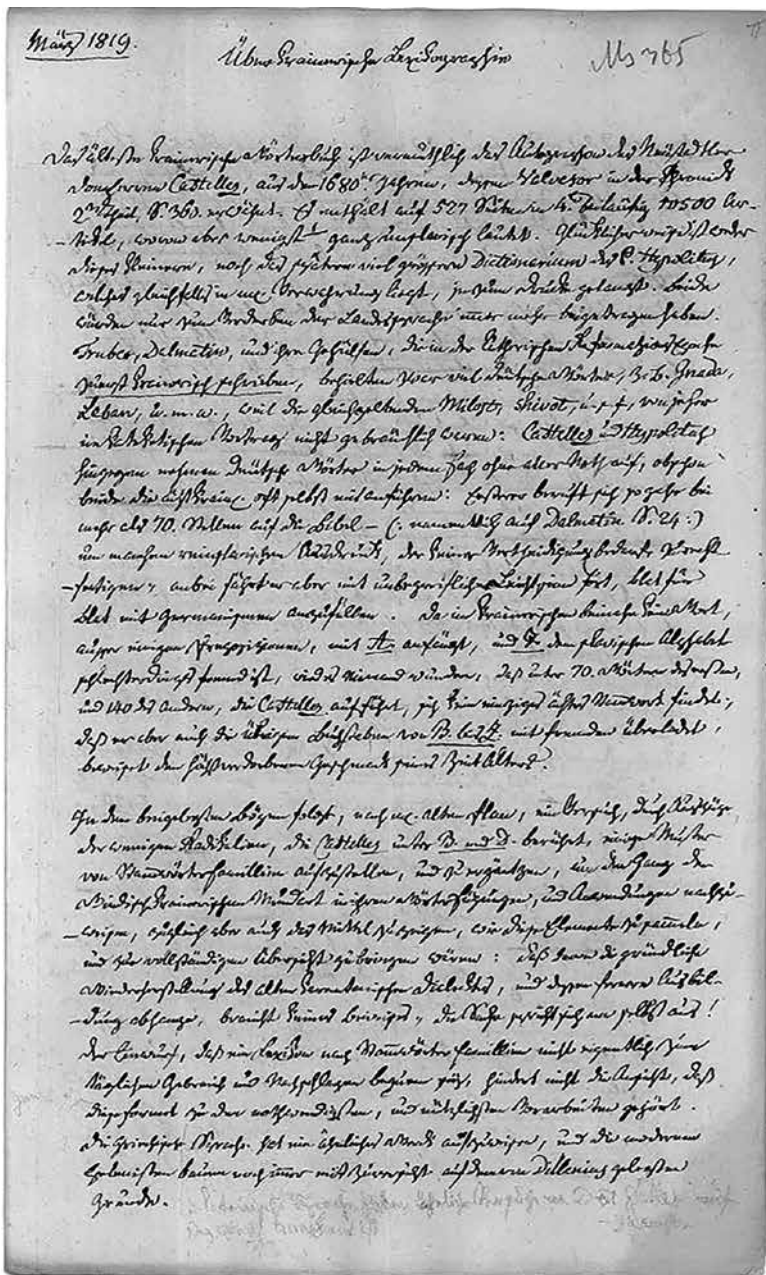 März 1819.
Über Krainerische Lexikographie
Ms 365
Das älteste Krainerische Wörterbuch ist vermuthlich das Autographon des Neüstadtler
Domherrn Castellez, aus den 1680.r Jahren, dessen Valvasor in der Chronik
2ter Theil, S. 360. erwähnt. Es enthält auf 527 Seiten in 4. beilaüfig 10500 Ar-
-tikel, wovon aber wenigst ganz unslavisch lautet. Glücklicher weise ist weder
dieses kleinere, noch das spätere viel grössere Dictionarium des P. Hypolitus,
welches gleichfalls in Verwahrung liegt, je zum Drucke gelangt. Beide
würden nur zum Verderben der Landessprache immer mehr beigetragen haben.
Truber, Dalmatin, und ihre Gehülfen, die in der Lutherischen Reformazionsepoche
zuerst Krainerisch schrieben, behielten zwar viel deütsche Wörter, z. B. Gnada,
Leban, u. m. a., weil die gleichgeltenden Milost, shivot, u. s. f., von jeher
im Kateketischen Vortrag nicht gebraüchlich waren: Castellez und Hypolitus
hingegen nehmen deütsche Wörter in jedem Fach ohne aller Noth auf, obschon
beide die ächt Krain. oft selbst mit anführen: Ersterer beruft sich sogar bei
mehr als 70. Stellen auf die Bibel – (: namentlich auf Dalmatin S. 24 :)
um manchen reinslavischen Ausdruck, der keiner Vertheidigung bedarf zu recht
-fertigen; anbei fährt er aber mit unbegreiflichem Leichtsinn fort, Blat für
Blat mit Germanismen anzufüllen. Da im Krainerischen beinahe kein Wort,
ausser einigen Præpositionen, mit A. anfängt, und F. dem slavischen Alphabet
schlechterdings fremd ist, wird es Niemand wundern, daß unter 70. Wörtern des ersten,
und 140 des andern, die Castellez aufführt, sich kein einziges ächtes Stammwort findet;
daß er aber auch die übrigen Buchstaben von B. bis Z. mit fremden überladet,
beweiset den höchstverdorbenen Geschmack seines Zeitalters.
In den beigelegten Bögen folgt, nach alten Plan, ein Versuch, durch Auszüge
der wenigen Radikalien, die Castellez unter B. und D. berührt, einige Muster
von Stammwörterfamilien aufzustellen, und zu ergäntzen, um den Gang der
Windisch Krainerischen Mundart in ihren Wörterfügungen, und Anwendungen nachzu-
-weisen, zugleich aber auch das Mittel zu zeigen, wie diese Elemente zu sameln,
und zur vollständigen Übersicht zu bringen wären: daß davon die gründliche
Wiederherstellung des alten Karentanischen Dialekts, und dessen fernere Ausbil-
-dung abhange, braucht keines Beweises; die Sache spricht sich von selbst aus!
Der Einwurf, daß ein Lexikon nach Stammwörterfamilien nicht eigentlich zum
täglichen Gebrauch und Nachschlagen bequem sei, hindert nicht die Ansicht, daß
diese format zu den nothwendigsten, und nützlichsten Vorarbeiten gehört.
Die Griechische Sprache hat ein ähnliches Werk aufzuweisen, und die modernen
Helenisten bauen noch immer mit Zuversicht auf dem von Dillenius gelegten
Grunde.